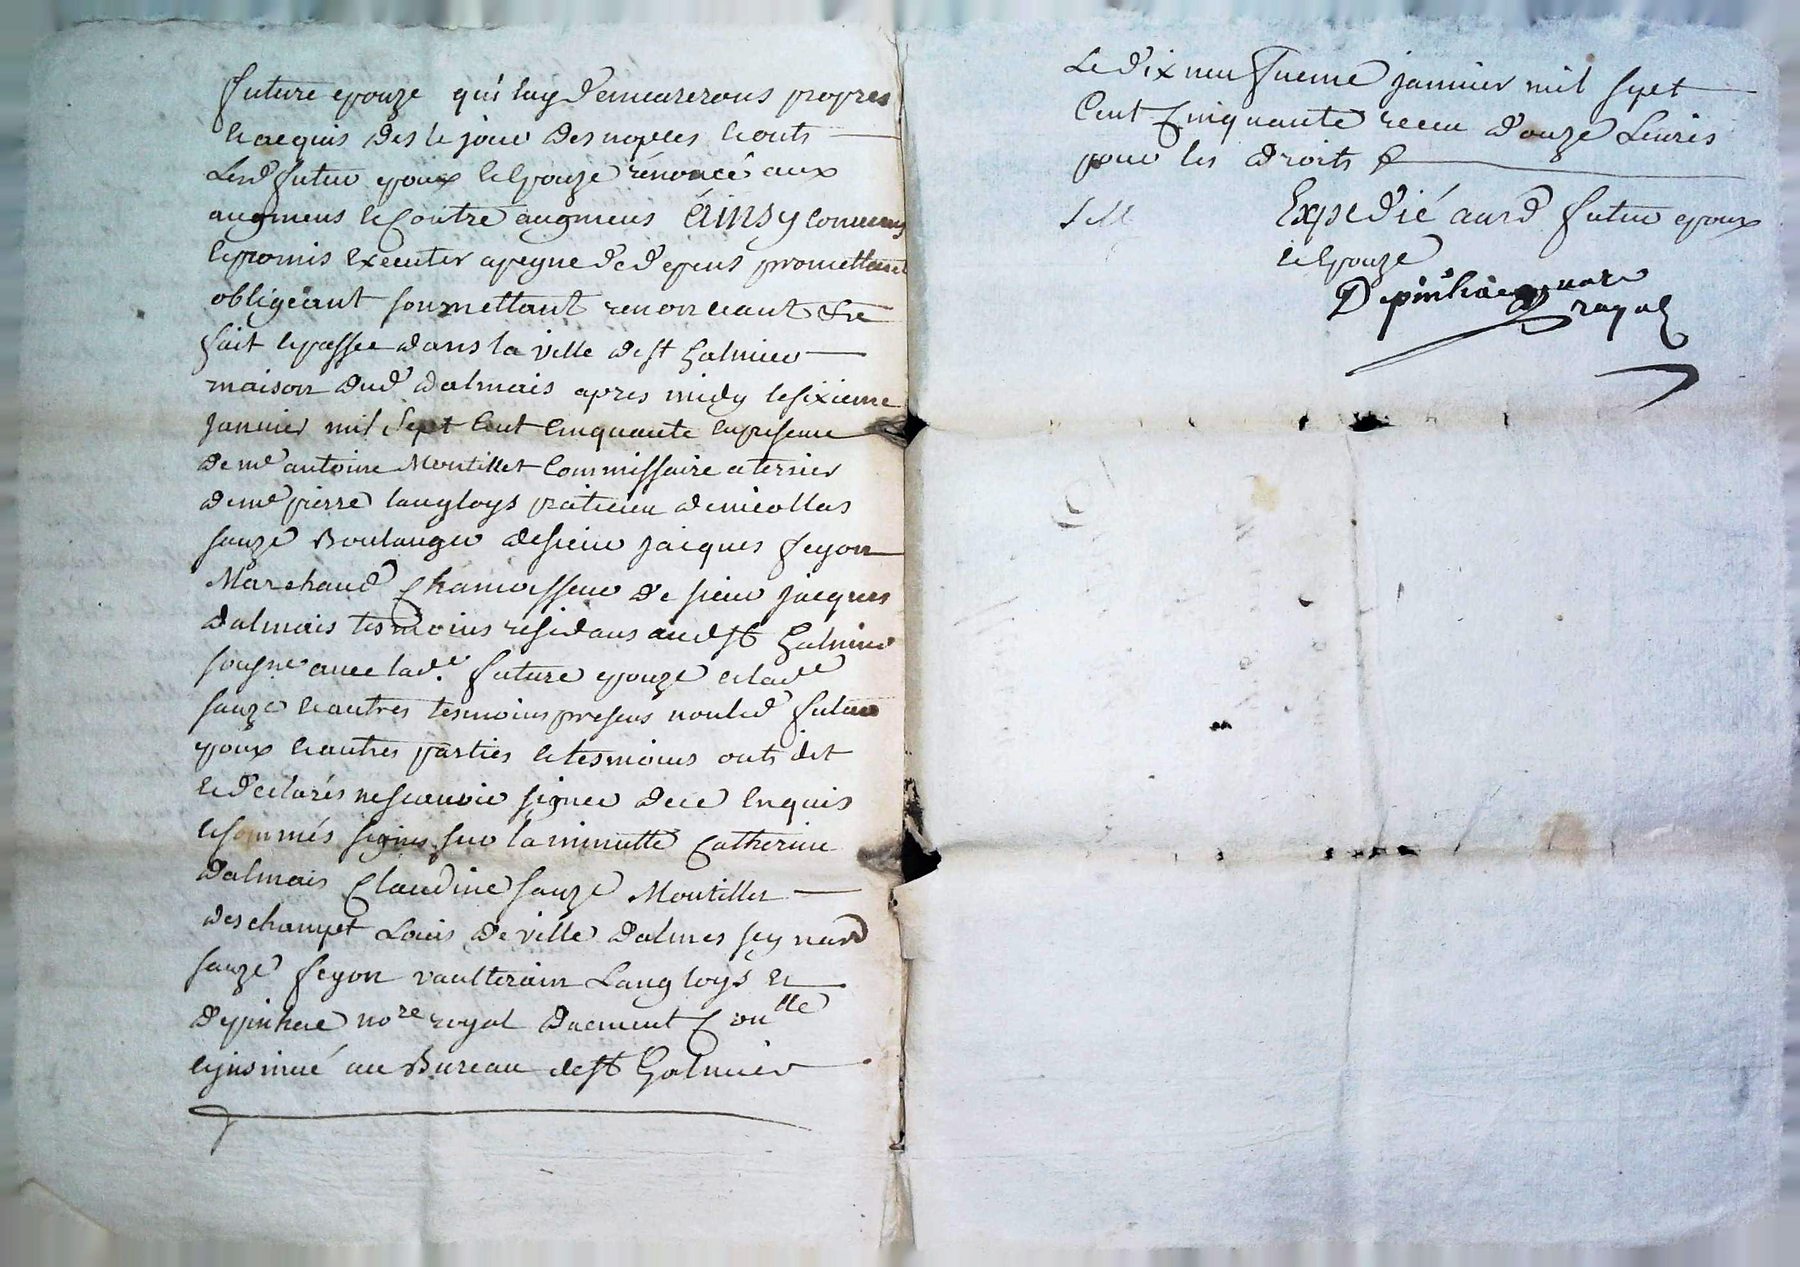 future epouze qui luy demeurerons propres
et acquis des le jour des nopces et onts
Lesd futur epoux et epouze rénoncé aux
augmens et contre augmens éinsy convenus
et promis executer apeyne de depens promettant
obligéant soumettant renonceant &re
fait et passée dans la ville de st Galmier
maison dud dalmais apres midy le sixieme
janvier mil sept cent cinquante en presence
de me antoine Montillet Commissaire a terrier
de me pierre langloys praticien de nicollas
sauze Boulanger de sieur jacques feyon
Marchand Chamoisseur de sieur jacques
dalmais tesmoins residans aud st Galmier
sousne avec lade. future epouze et lade
sauze et autres tesmoins presens non led futur
epoux et autres parties et tesmoins onts dit
et déclarés ne scauoir signer de ce enquis
et sommés signés sur la minutte Catherine
dalmais Claudine sauze Montillet
deschampt Louis de ville dalmes seynard
sauze feyon vaulterain Langloys et
depinhac nore royal duement Conlle
et insinué au Bureau de st Galmier
Le dix neufvieme janvier mil sept
Cent Cinquante receu douze Livres
pour les droits &
Expedié aud futur epoux
et epouze
Depinhac nore
royal